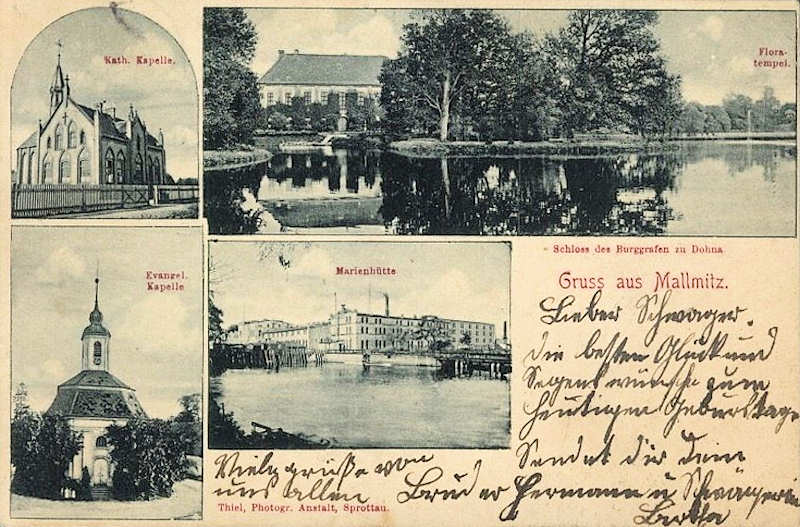 Kath. Kapelle.
Flora-
tempel.
Schloss des Burggrafen zu Dohna
Evangel.
Kapelle
Marienhütte
Gruss aus Mallmitz.
Lieber Schwager.
die besten Glück und
Segens wünsche zum
heutigen Geburtstage
Sendet dir dein
Bruder Hermann u Schwägerin
Bertha
Viele grüße von
uns allen
Thiel, Photogr. Anstalt, Sprottau.